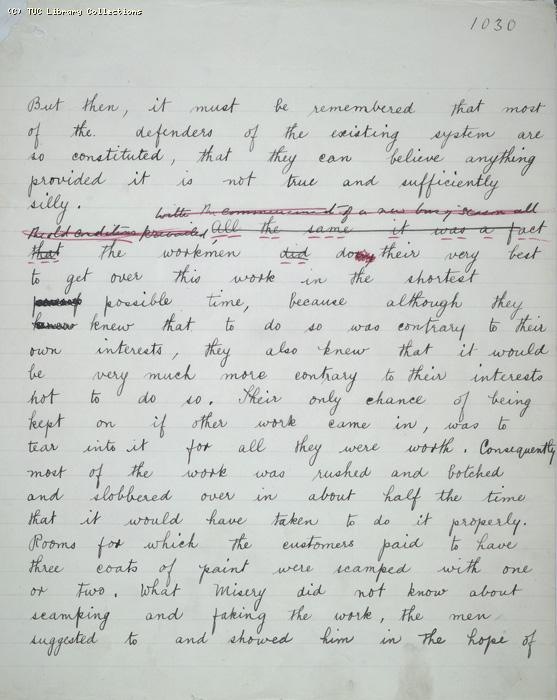 (C) TUC Library Collections
1030
But then, it must be remembered that most
of the. defenders of the existing system are
so constituted, that they can believe anything
provided it is not true and sufficiently
silly.
With the commencement of a new busy season all
the old conditions prevailed, All the same it was a fact
that the workmen did do their very best
to get over this work in the shortest
possible time, because although they
knew knew that to do so was contrary to their
own interests, they also knew that it would
be very much more contrary to their interests
not to do so. Their only chance of being
kept on if other work came in, was to
tear into it for all they were worth. Consequently
most of the work was rushed and botched
and slobbered over in about half the time
that it would have taken to do it properly.
Rooms for which the customers paid to have
three coats of paint were scamped with one
or two. What Misery did not know about
scamping and faking the work, the men
suggested to and showed him in the hope of